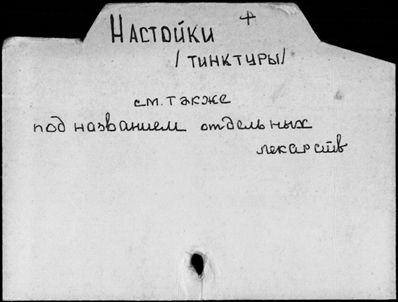 НАСТОЙКИ +
/ТИНКТУРЫ/
см. также
под названием отдельных
лекарств